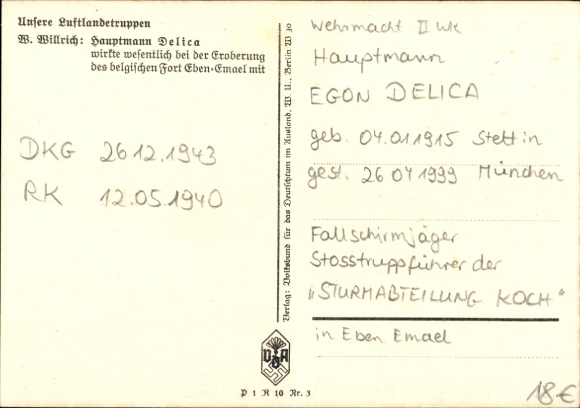 Unsere Luftlandetruppen
W. Willrich: Hauptmann Delica
wirkte wesentlich bei der Eroberung
des belgischen Fort Eben-Emael mit
DKG 26.12.1943
RK 12.05.1940
Verlag: Volksbund für das Deutschtum im Ausland, W. U., Berlin W 30
VDA
P 1 R 10 Nr. 3
Wehrmacht II WK
Hauptmann
EGON DELICA
geb. 04.01.1915 Stettin
gest. 26 04 1999 München
Fallschirmjäger
Stosstruppführer der
"STURMABTEILUNG KOCH"
in Eben Emael
18€